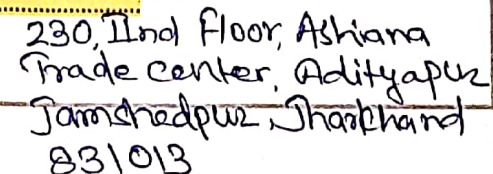 230, IInd Floor, Ashiana
Trade Center, Adityapur
Jamshedpur, Jharkhand
831013